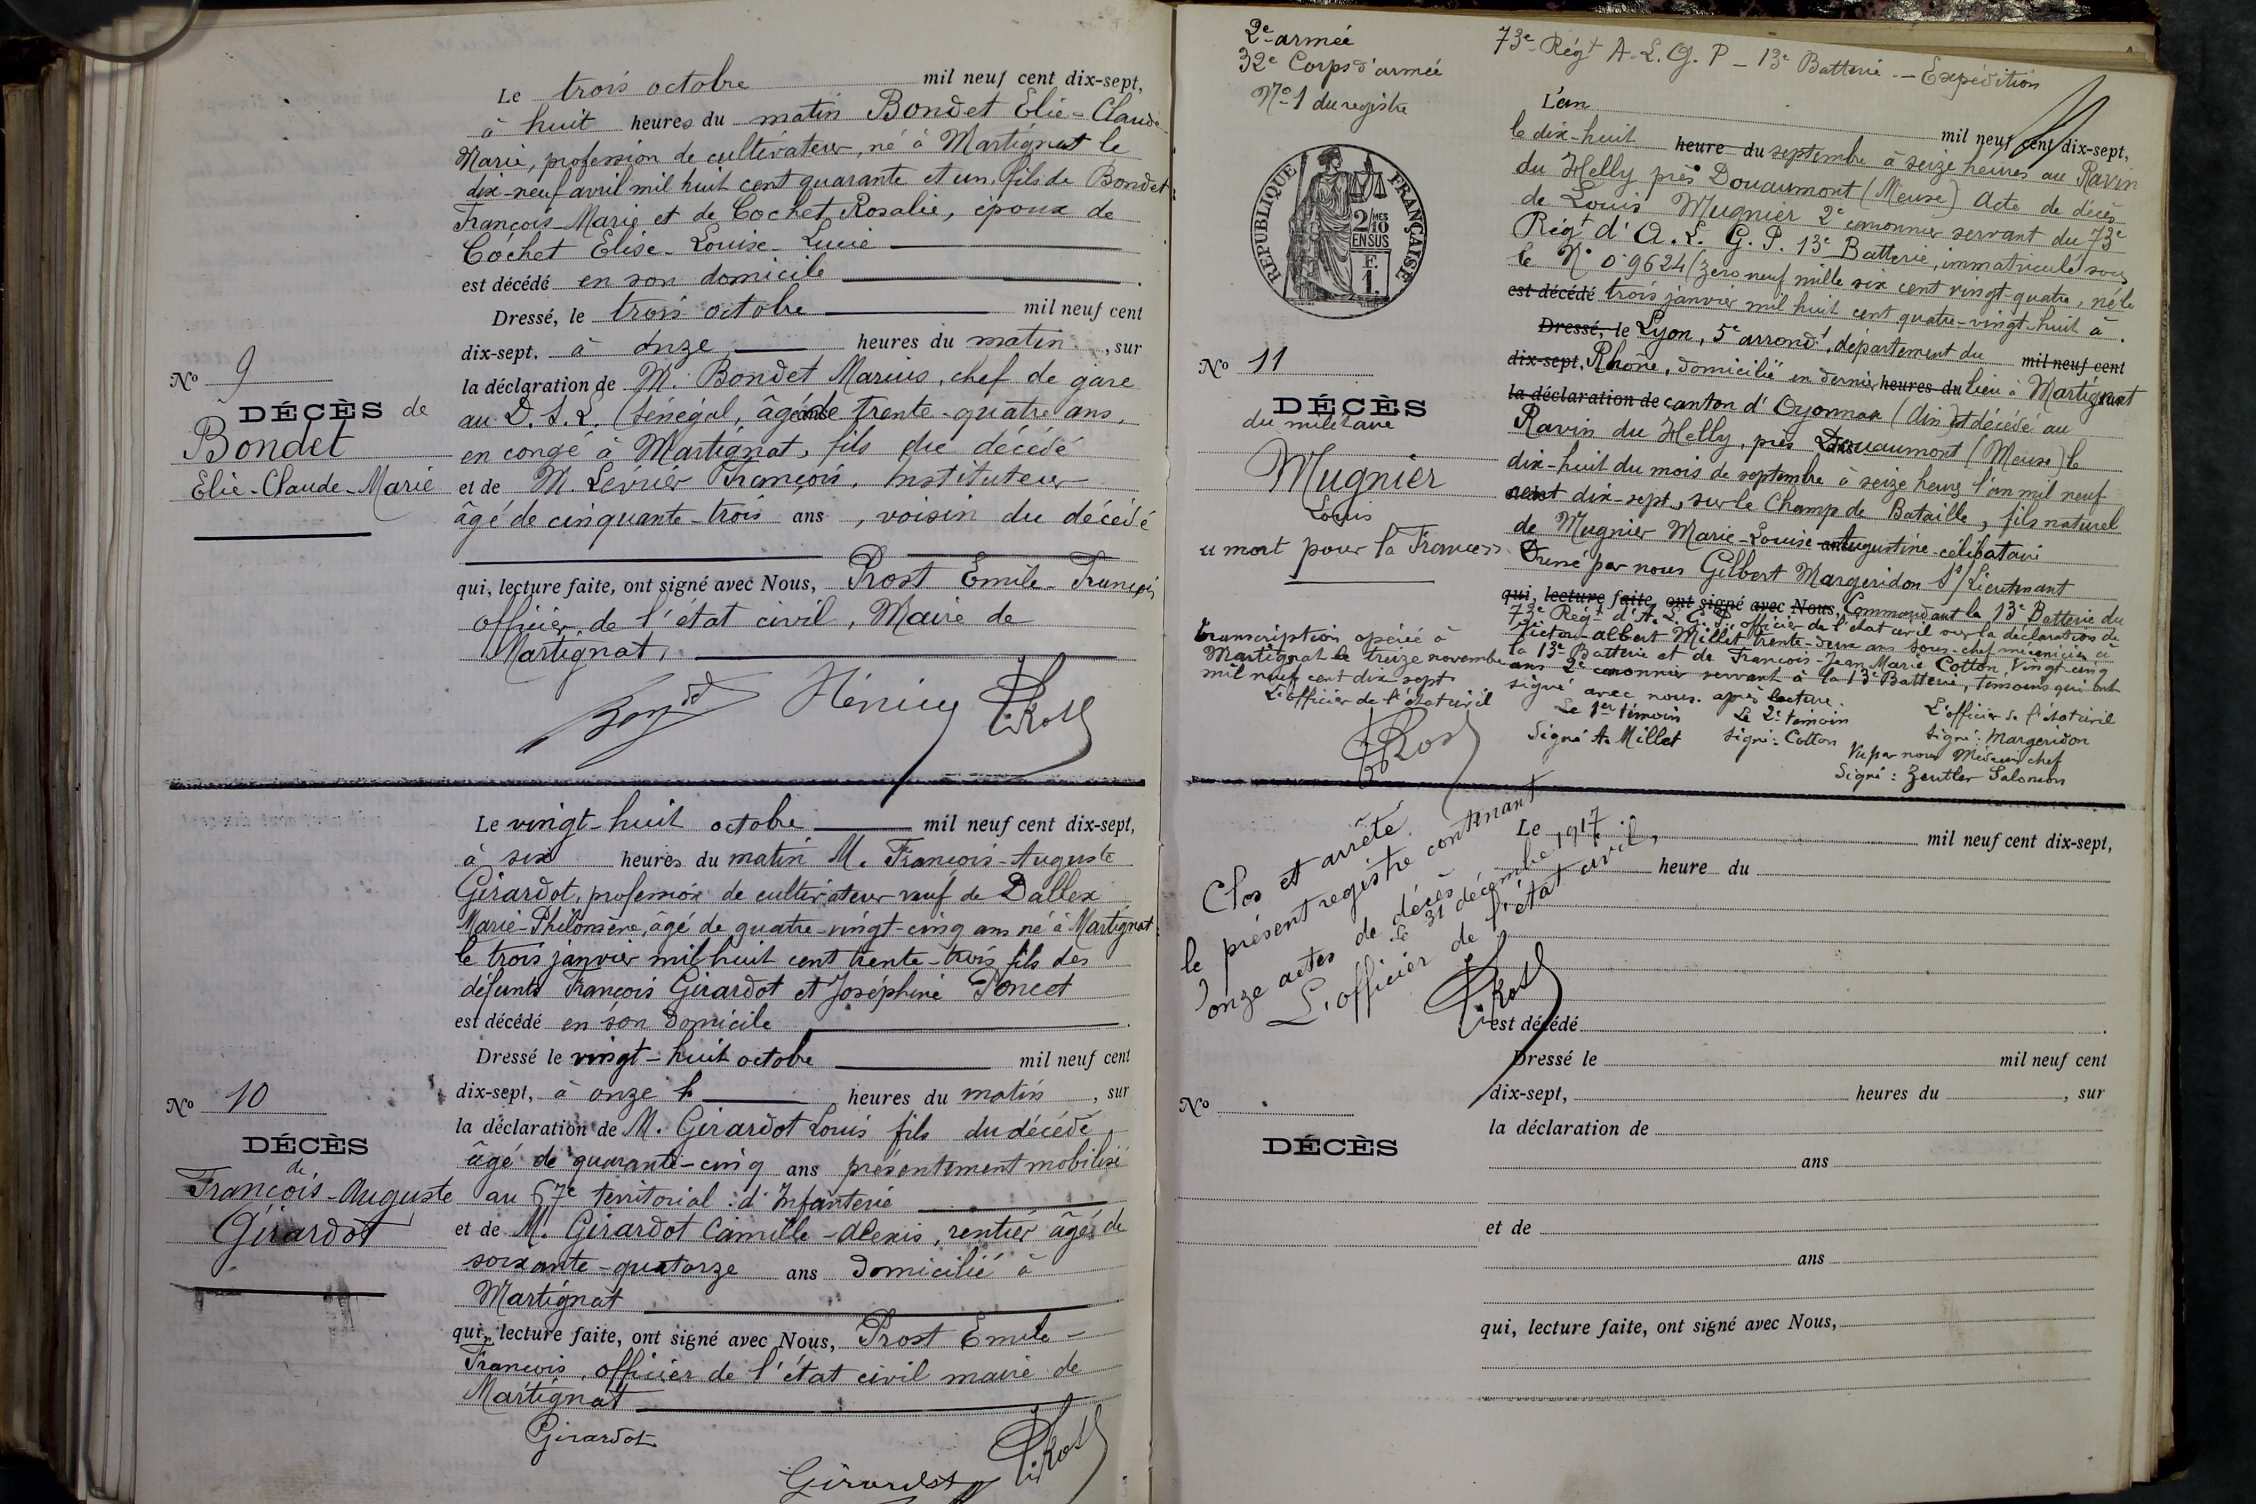 Le trois octobre mil neuf cent dix-sept,
à huit heures du matin Bondet Elie-Claude-
Marie, profession de cultivateur, né à Martignat le
dix-neuf avril mil huit cent quarante et un, fils de Bondet
François-Marie et de Cochet Rosalie, époux de
Cochet Elise-Louise-Lucie
est décédé en son domicile
Dressé, le trois octobre mil neuf cent
dix-sept, à onze heures du matin, sur
la déclaration de M. Bondet Marius, chef de gare
au D. S. L. (Sénégal, âgé de trente-quatre ans,
en congé à Martignat, fils du décédé
et de M. Lévrier François, Instituteur
âgé de cinquante-trois ans, voisin du décédé
qui, lecture faite, ont signé avec Nous, Prost Emile-François
officier de l'état civil, Maire de
Martignat,
No 9
DÉCÈS de
Bondet
Elie-Claude-Marie
Le vingt-huit octobre mil neuf cent dix-sept,
à six heures du matin M. François-Auguste
Girardot, profession de cultivateur veuf de Dallex
Marie-Philomène, âgé de quatre-vingt-cinq ans né à Martignat
le trois janvier mil huit cent trente-trois fils des
défunts François Girardot et Joséphine Poncet
est décédé en son domicile
Dressé le vingt-huit octobre mil neuf cent
dix-sept, à onze h heures du matin, sur
la déclaration de M. Girardot Louis fils du décédé
âgé de quarante-cinq ans présentement mobilisé
au 57e territorial d'Infanterie
et de M. Girardot Camille-Alexis, rentier âgé de
soixante-quatorze ans domicilié à
Martignat
qui, lecture faite, ont signé avec Nous, Prost Emile-
François, officier de l'état civil maire de
Martignat
Girardot
Girardot
Prost
No 10
DÉCÈS
de
François-Auguste
Girardot
2e armée
32e Corps d'armée
No 1 du registre
73e Régt A. L. G. P - 13e Batterie - Expédition
RÉPUBLIQUE FRANÇAISE
2/10 MES
EN SUS
F.
1.
L'an mil neuf cent dix-sept,
le dix-huit heure du septembre à seize heures au Ravin
du Helly près Douaumont (Meuse) Acte de décès
de Louis Mugnier 2e canonnier servant du 73e
Régt d'A. L. G. P. 13e Batterie, immatriculé sous
le No 09624 (zero neuf mille six cent vingt-quatre, né le
est décédé trois janvier mil huit cent quatre-vingt-huit à
Dressé, le Lyon, 5e arrondt, département du mil neuf cent
dix-sept, Rhône, domicilié en dernier heures du lieu à Martignat
la déclaration de canton d'Oyonnax (Ain) est décédé au
Ravin du Helly, près Douaumont (Meuse) le
dix-huit du mois de septembre à seize heures l'an mil neuf
cent dix-sept, sur le Champ de Bataille, fils naturel
de Mugnier Marie-Louise Augustine célibataire
Dressé par nous Gilbert Margeridon Ss/Lieutenant
qui, lecture faite, ont signé avec Nous, Commandant la 13e Batterie du
73e Régt d'A. L. G. P., officier de l'état civil sur la déclaration de
Victor-Albert Millet trente-deux ans sous-chef mécanicien à
la 13e Batterie et de François-Jean Marie Cotton Vingt-cinq
ans 2e canonnier servant à la 13e Batterie, témoins qui ont
signé avec nous après lecture.
Le 1er témoin Le 2e témoin L'officier de l'état civil
Signé A. Millet Signé: Cotton Signé: Margeridon
Vu par nous Médecin chef
Signé: Zeutler Salomon
No 11
DÉCÈS
du militaire
Mugnier
Louis
"mort pour la France"
transcription opérée à
Martignat le treize novembre
mil neuf cent dix sept
L'officier de l'état civil
Prost
Clos et arrêté
le présent registre contenant
onze actes de décès
Le 31 décembre 1917
L'officier de l'état civil,
Prost
Le mil neuf cent dix-sept,
heure du
est décédé
Dressé le mil neuf cent
dix-sept, heures du , sur
la déclaration de
ans
et de
ans
qui, lecture faite, ont signé avec Nous,
No
DÉCÈS